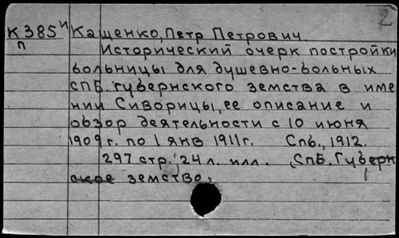 2
К 385 И Кащенко, Петр Петрович.
п Исторический очерк постройки
больницы для душевно-больных
СПБ. губернского земства в име
нии Сиворицы, ее описание и
обзор деятельности с 10 июня
1909 г. по 1 янв 1911 г. Спб., 1912.
297 стр., 24 л. илл. (СПБ. Губерн
ское земство.